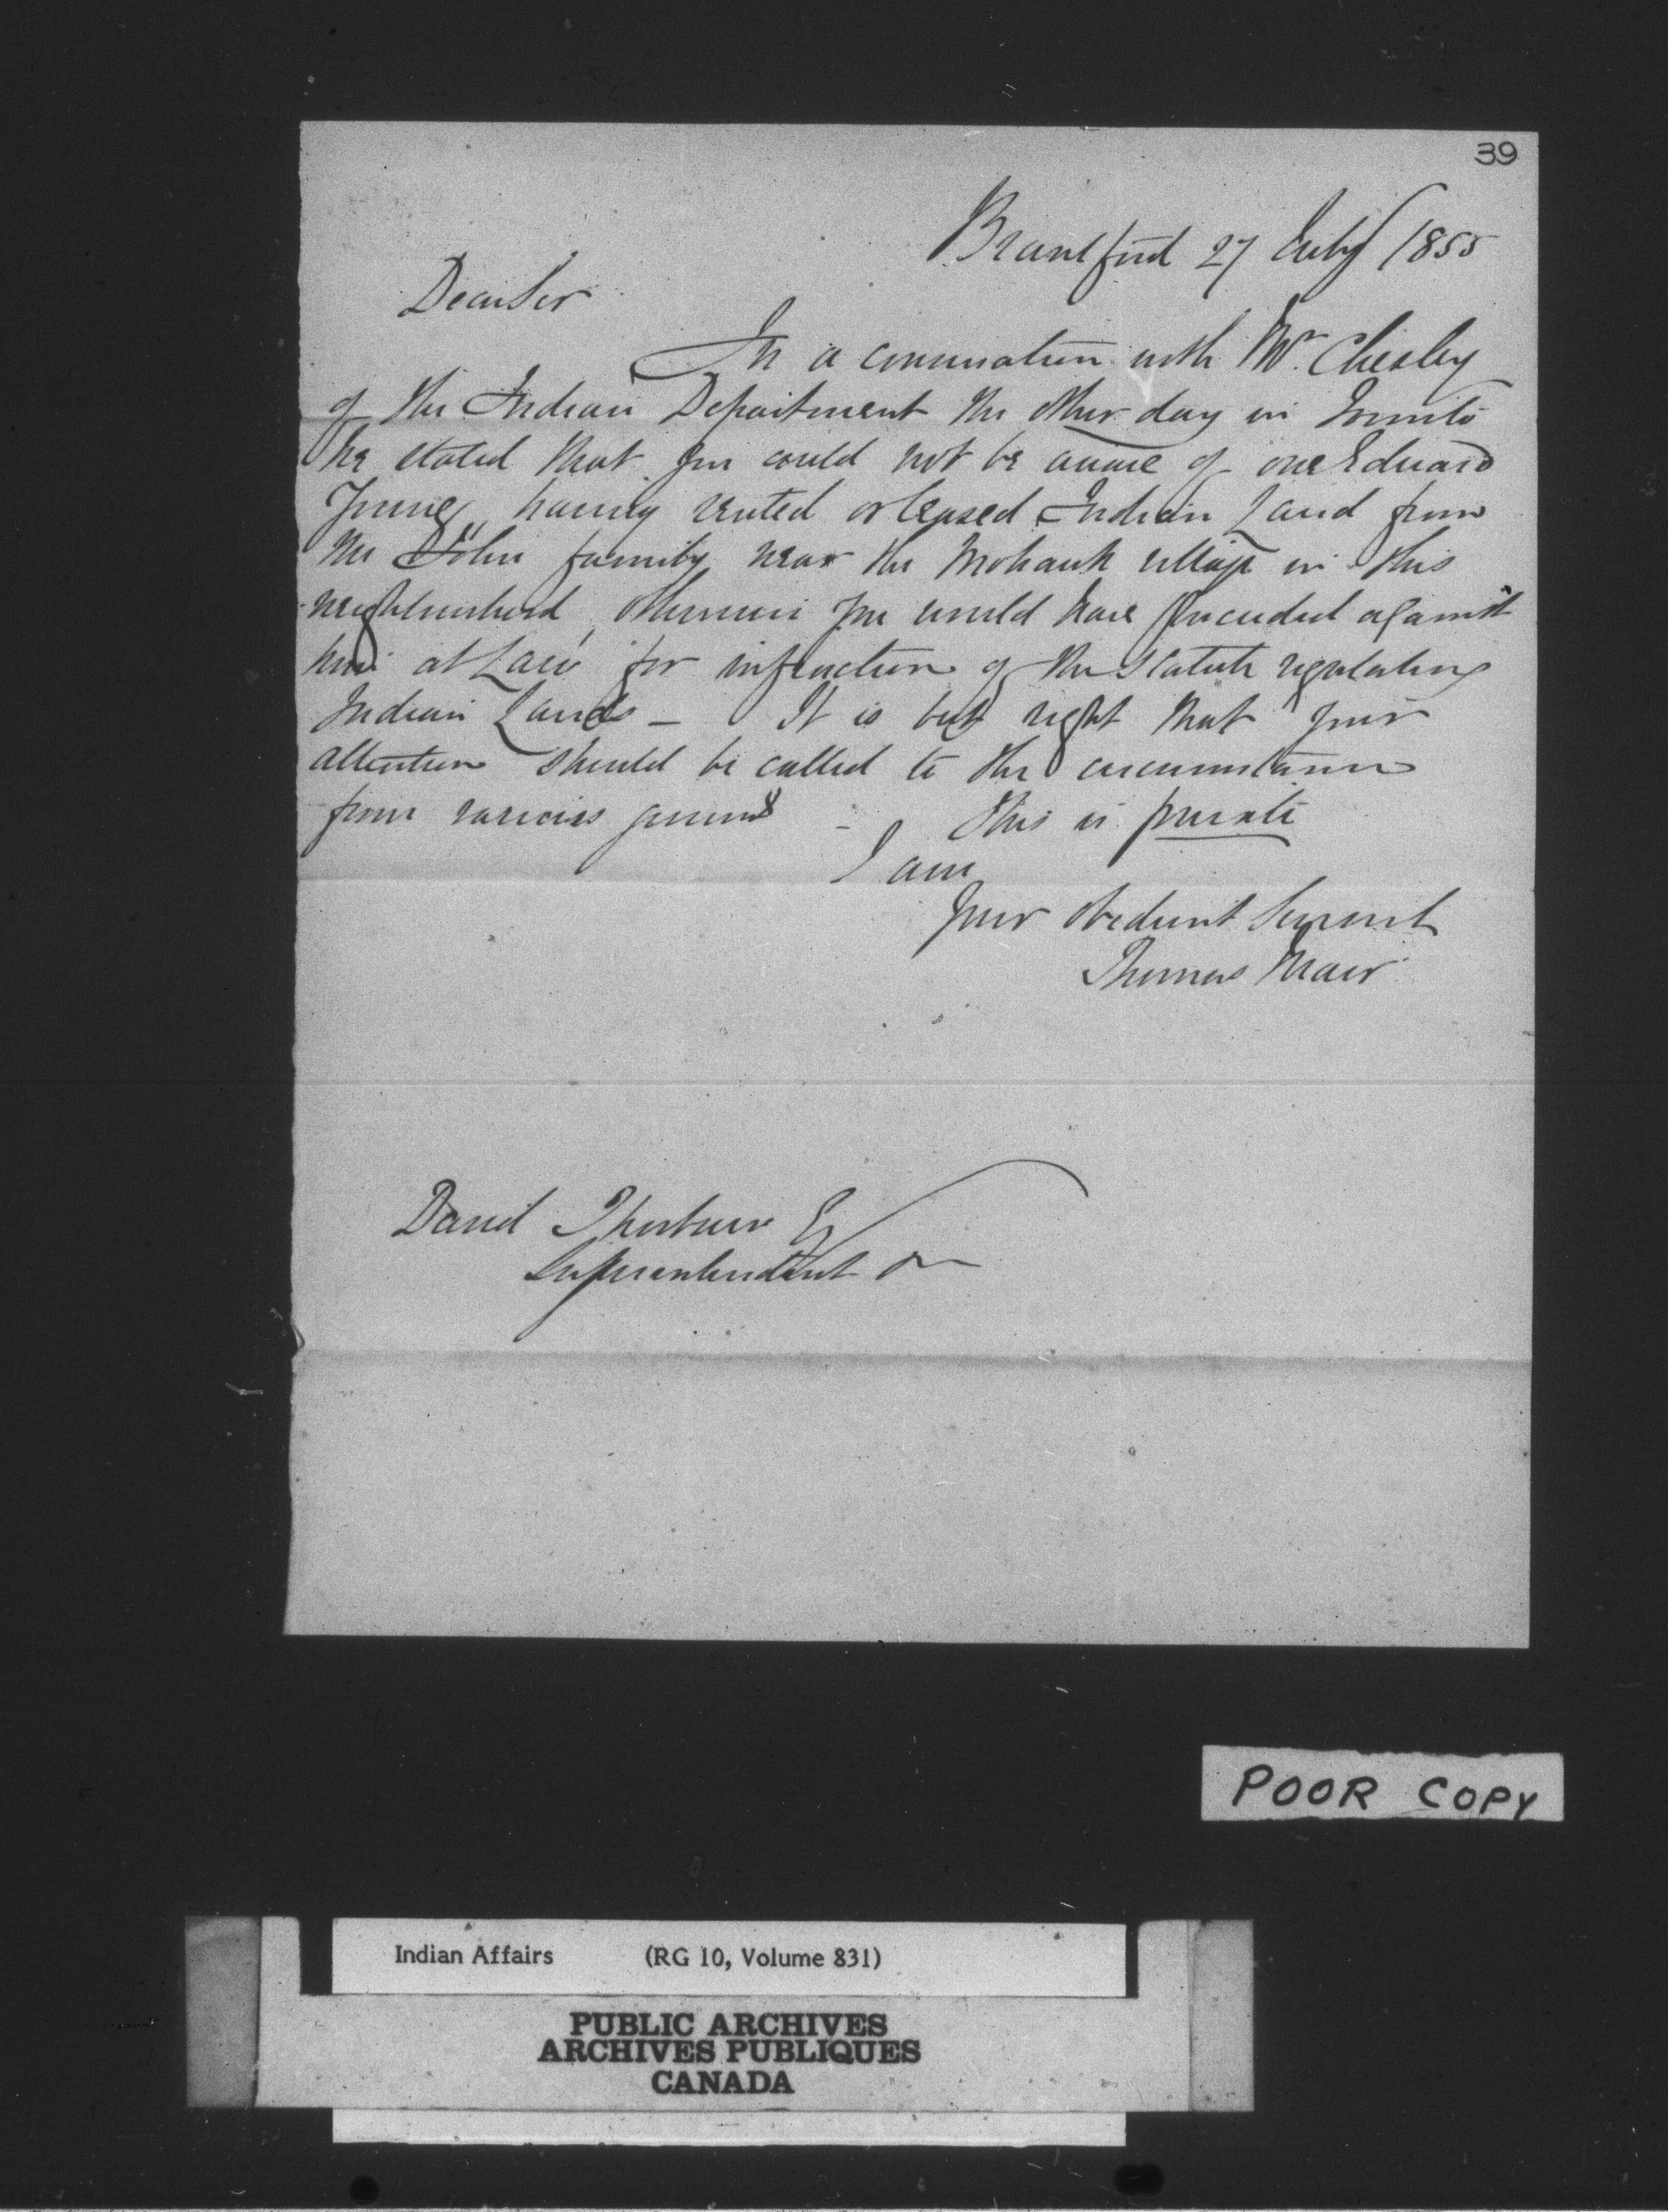 39
Brantford 27 July 1855
Dear Sir
In a conversation with Mr. Chesley
of the Indian Department the other day in Toronto
he stated that you could not be aware of one Edward
having rented or leased Indian Land from
the John family near the Mohawk village in this
neighbourhood, otherwise you would have proceeded against
him at Law for infraction of the Statute regulating
Indian Lands — It is but right that your
attention should be called to the circumstance
from various — This is private
I am
Your obedient Servant
Thomas Mair
David Thorburn Esq
Superintendent
POOR COPY
Indian Affairs (RG 10, Volume 831)
PUBLIC ARCHIVES
ARCHIVES PUBLIQUES
CANADA